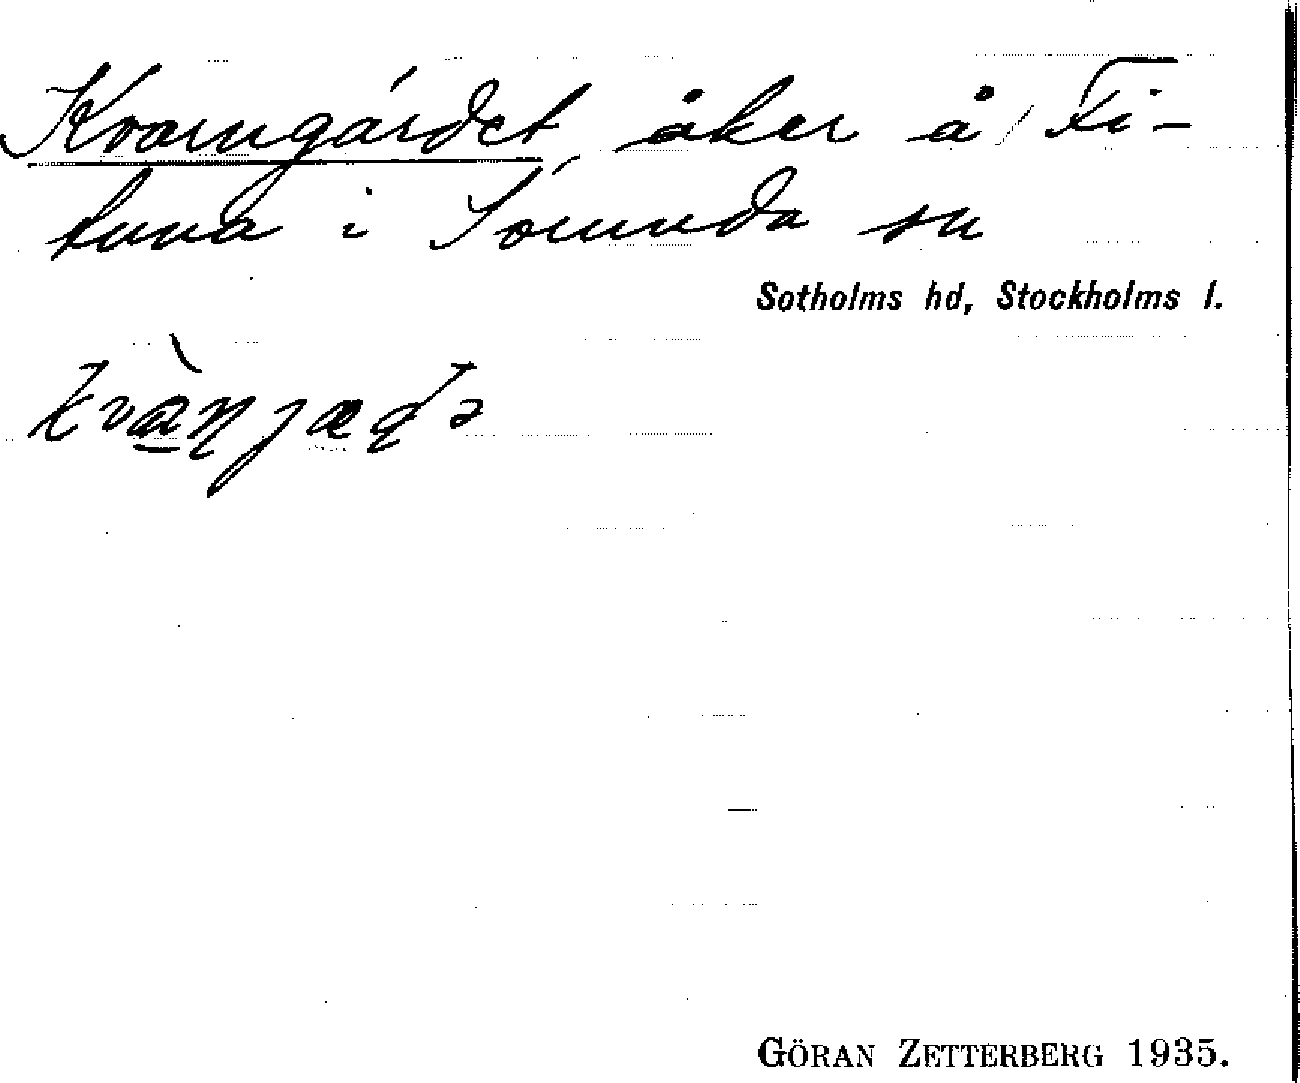 Kvarngärdet, åker å Fi-
tuna i Sorunda sn
Sotholms hd, Stockholms l.
GÖRAN ZETTERBERG 1935.